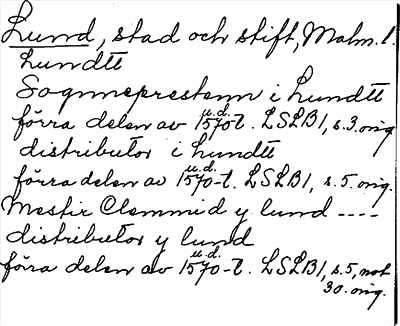 Lund, stad och stift, Malm. l.
Lundtt
Sognneprestenn i Lundtt
förra delen av 1570-t. u.d. LSLB1, s.3. orig
distributor i Lundtt
förra delen av 1570-t. u.d. LSLB1, s.5. orig.
Mestir Clemmid y lund ----
distributor y lund
förra delen av 1570-t. u.d. LSLB1, s.5, not
30. orig.